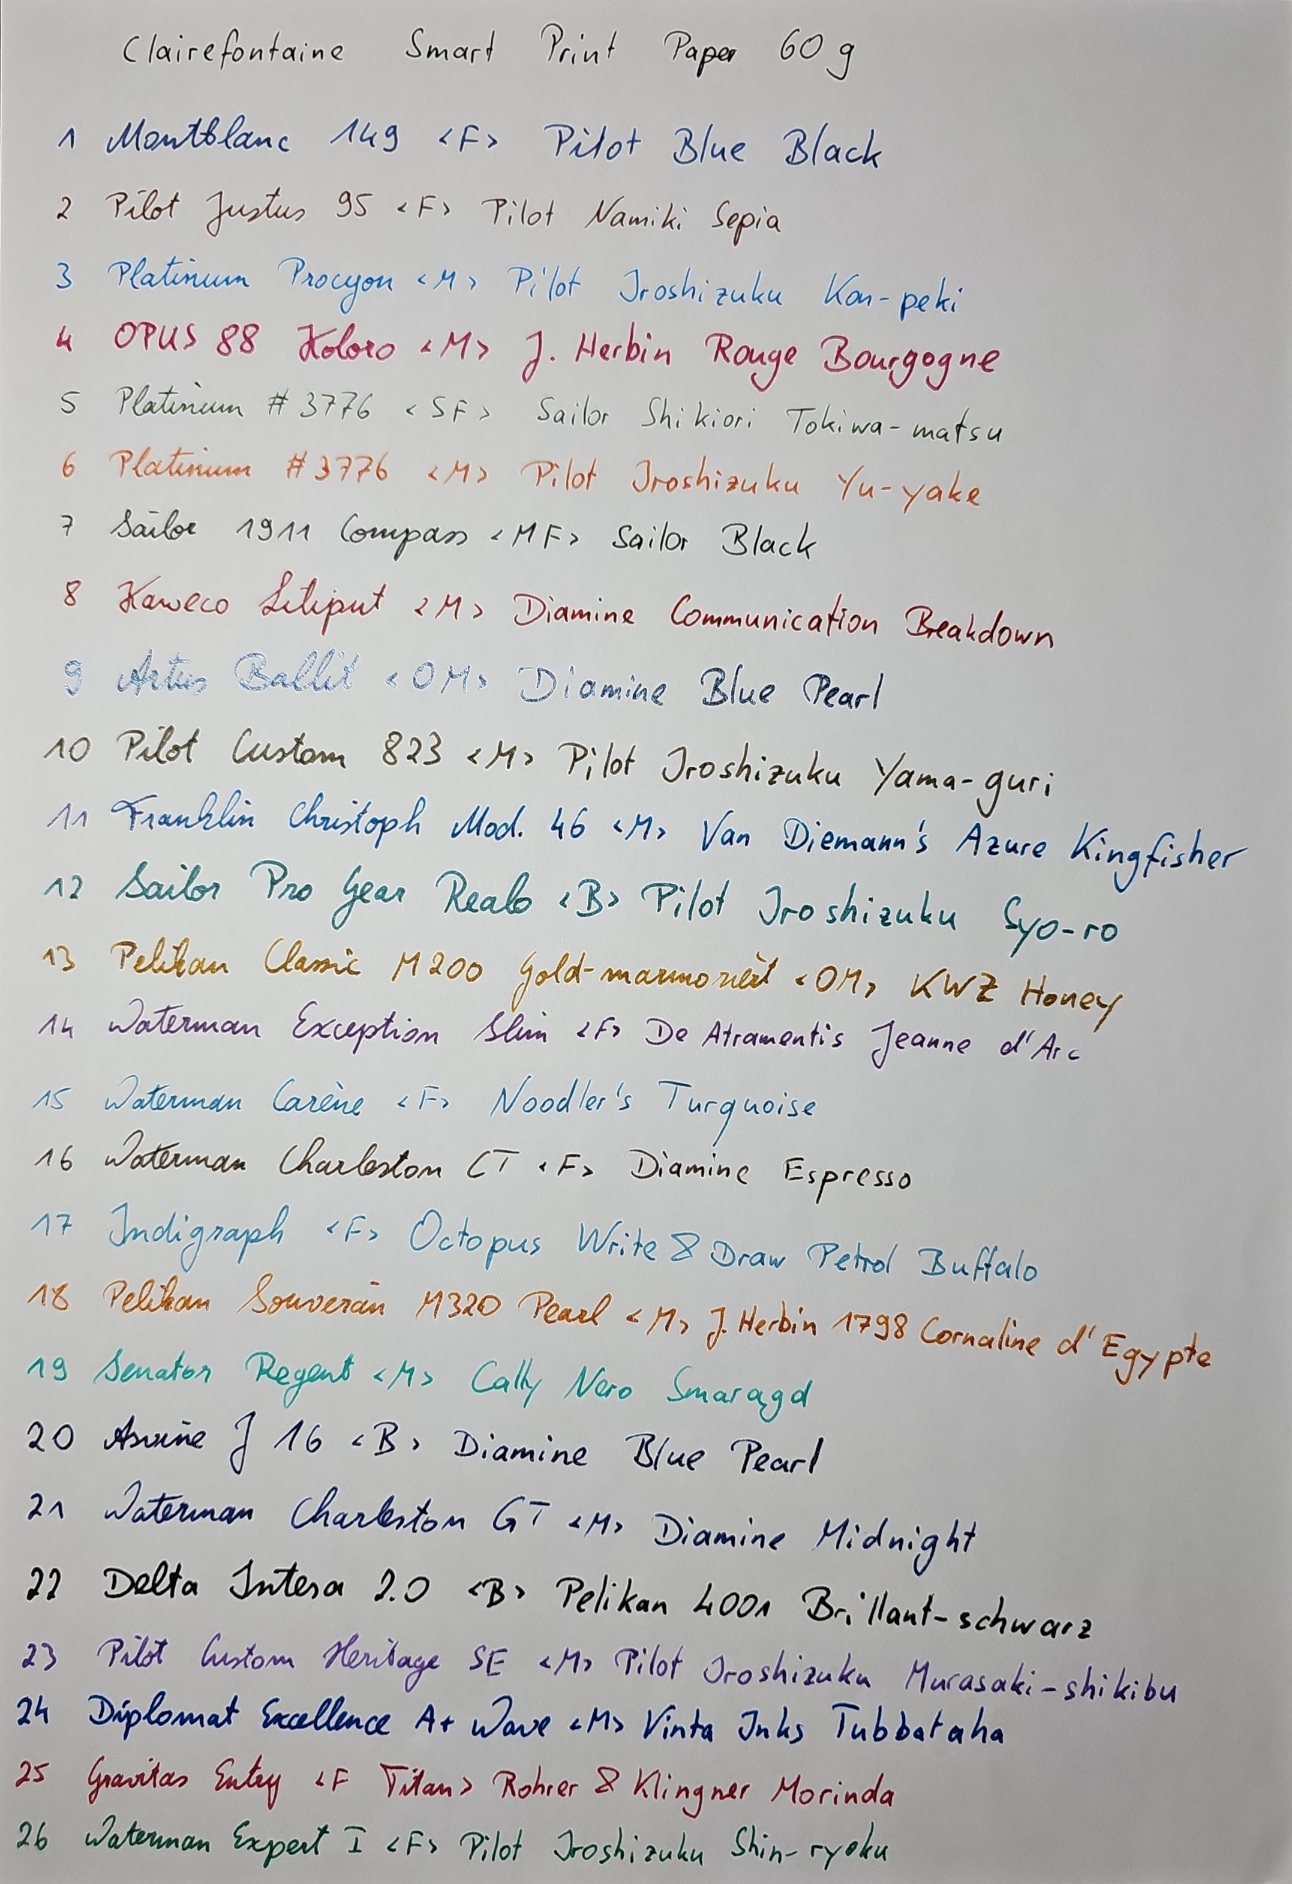 Clairefontaine Smart Print Paper 60 g
1 Montblanc 149 <F> Pilot Blue Black
2 Pilot Justus 95 <F> Pilot Namiki Sepia
3 Platinum Procyon <M> Pilot Iroshizuku Kon-peki
4 OPUS 88 Koloro <M> J. Herbin Rouge Bourgogne
5 Platinum #3776 <SF> Sailor Shikiori Tokiwa-matsu
6 Platinum #3776 <M> Pilot Iroshizuku Yu-yake
7 Sailor 1911 Compass <MF> Sailor Black
8 Kaweco Liliput <M> Diamine Communication Breakdown
9 Artus Ballit <OM> Diamine Blue Pearl
10 Pilot Custom 823 <M> Pilot Iroshizuku Yama-guri
11 Franklin Christoph Mod. 46 <M> Van Diemann's Azure Kingfisher
12 Sailor Pro Gear Realo <B> Pilot Iroshizuku Syo-ro
13 Pelikan Classic M200 Gold-marmoriert <OM> KWZ Honey
14 Waterman Exception Slim <F> De Atramentis Jeanne d'Arc
15 Waterman Carène <F> Noodler's Turquoise
16 Waterman Charleston CT <F> Diamine Espresso
17 Indigraph <F> Octopus Write & Draw Petrol Buffalo
18 Pelikan Souverän M320 Pearl <M> J. Herbin 1798 Cornaline d'Egypte
19 Senator Regent <M> Cally Nero Smaragd
20 Asvine J 16 <B> Diamine Blue Pearl
21 Waterman Charleston GT <M> Diamine Midnight
22 Delta Intesa 2.0 <B> Pelikan 4001 Brillant-schwarz
23 Pilot Custom Heritage SE <M> Pilot Iroshizuku Murasaki-shikibu
24 Diplomat Excellence A+ Wave <M> Vinta Inks Tubbataha
25 Gravitas Entry <F Titan> Rohrer & Klingner Morinda
26 Waterman Expert I <F> Pilot Iroshizuku Shin-ryoku